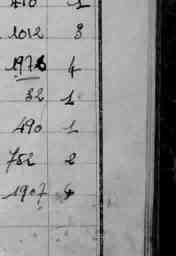 410 1
1012 3
1976 4
32 1
490 1
752 2
1907 4